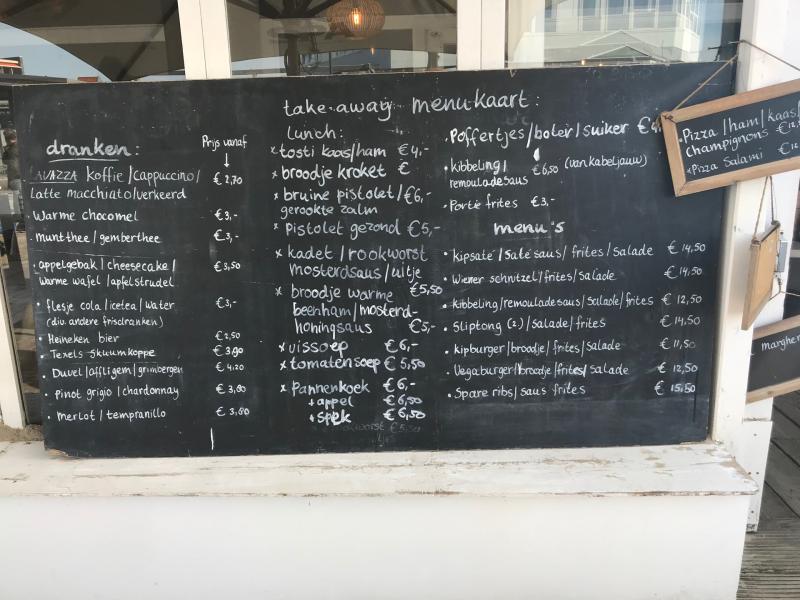 take-away menukaart:
dranken:
Prijs vanaf
LAVAZZA koffie/cappuccino/ € 2,70
Latte macchiato/verkeerd
• Warme chocomel €3,-
• muntthee/gemberthee €3,-
• appelgebak/cheesecake/ €3,50
warme wafel/apfelstrudel
• flesje cola/icetea/water €3,-
(div. andere frisdranken)
• Heineken bier €2,50
• Texels skuumkoppe
• Duvel/affligem/grimbergen €4,20
• Pinot grigio/chardonnay
• Merlot/tempranillo
lunch:
x tosti kaas/ham €4,-
x broodje kroket €
x bruine pistolet/ €6,-
gerookte zalm
x pistolet gezond €5,-
x kadet/rookworst
mosterdsaus/uitje
€5,50
x broodje warme
beenham/mosterd-
honingsaus €5,-
x vissoep €6,-
x tomatensoep €5,50
x Pannenkoek €6,-
+ appel €6,50
+ spek €6,50
• Poffertjes/boter/suiker
• kibbeling/ €6,50 (van kabeljauw)
remouladesaus
• Portie frites €3,-
menu's
• kipsaté/saté saus/frites/salade € 14,50
• Wiener schnitzel/frites/salade € 14,50
• kibbeling/remouladesaus/salade/frites € 12,50
• Sliptong (2.)/salade/frites € 14,50
• kipburger/broodje/frites/salade € 11,50
• Vegaburger/broodje/frites/salade € 12,50
• Spare ribs/saus frites € 15,50
• Pizza/ham/kaas/
Champignons €12,
• Pizza Salami €12,
margher